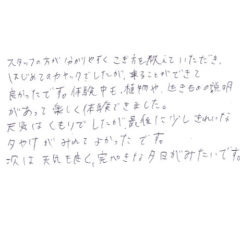 スタッフの方がわかりやすく こぎ方を教えていただき、
はじめてのカヤックでしたが、乗ることができて
良かったです。体験中も、植物や、生きものの説明
があって楽しく体験できました。
天気はくもりでしたが最後に少しきれいな
夕やけがみれてよかったです。
次は天気も良く、完ぺきな夕日がみたいです。